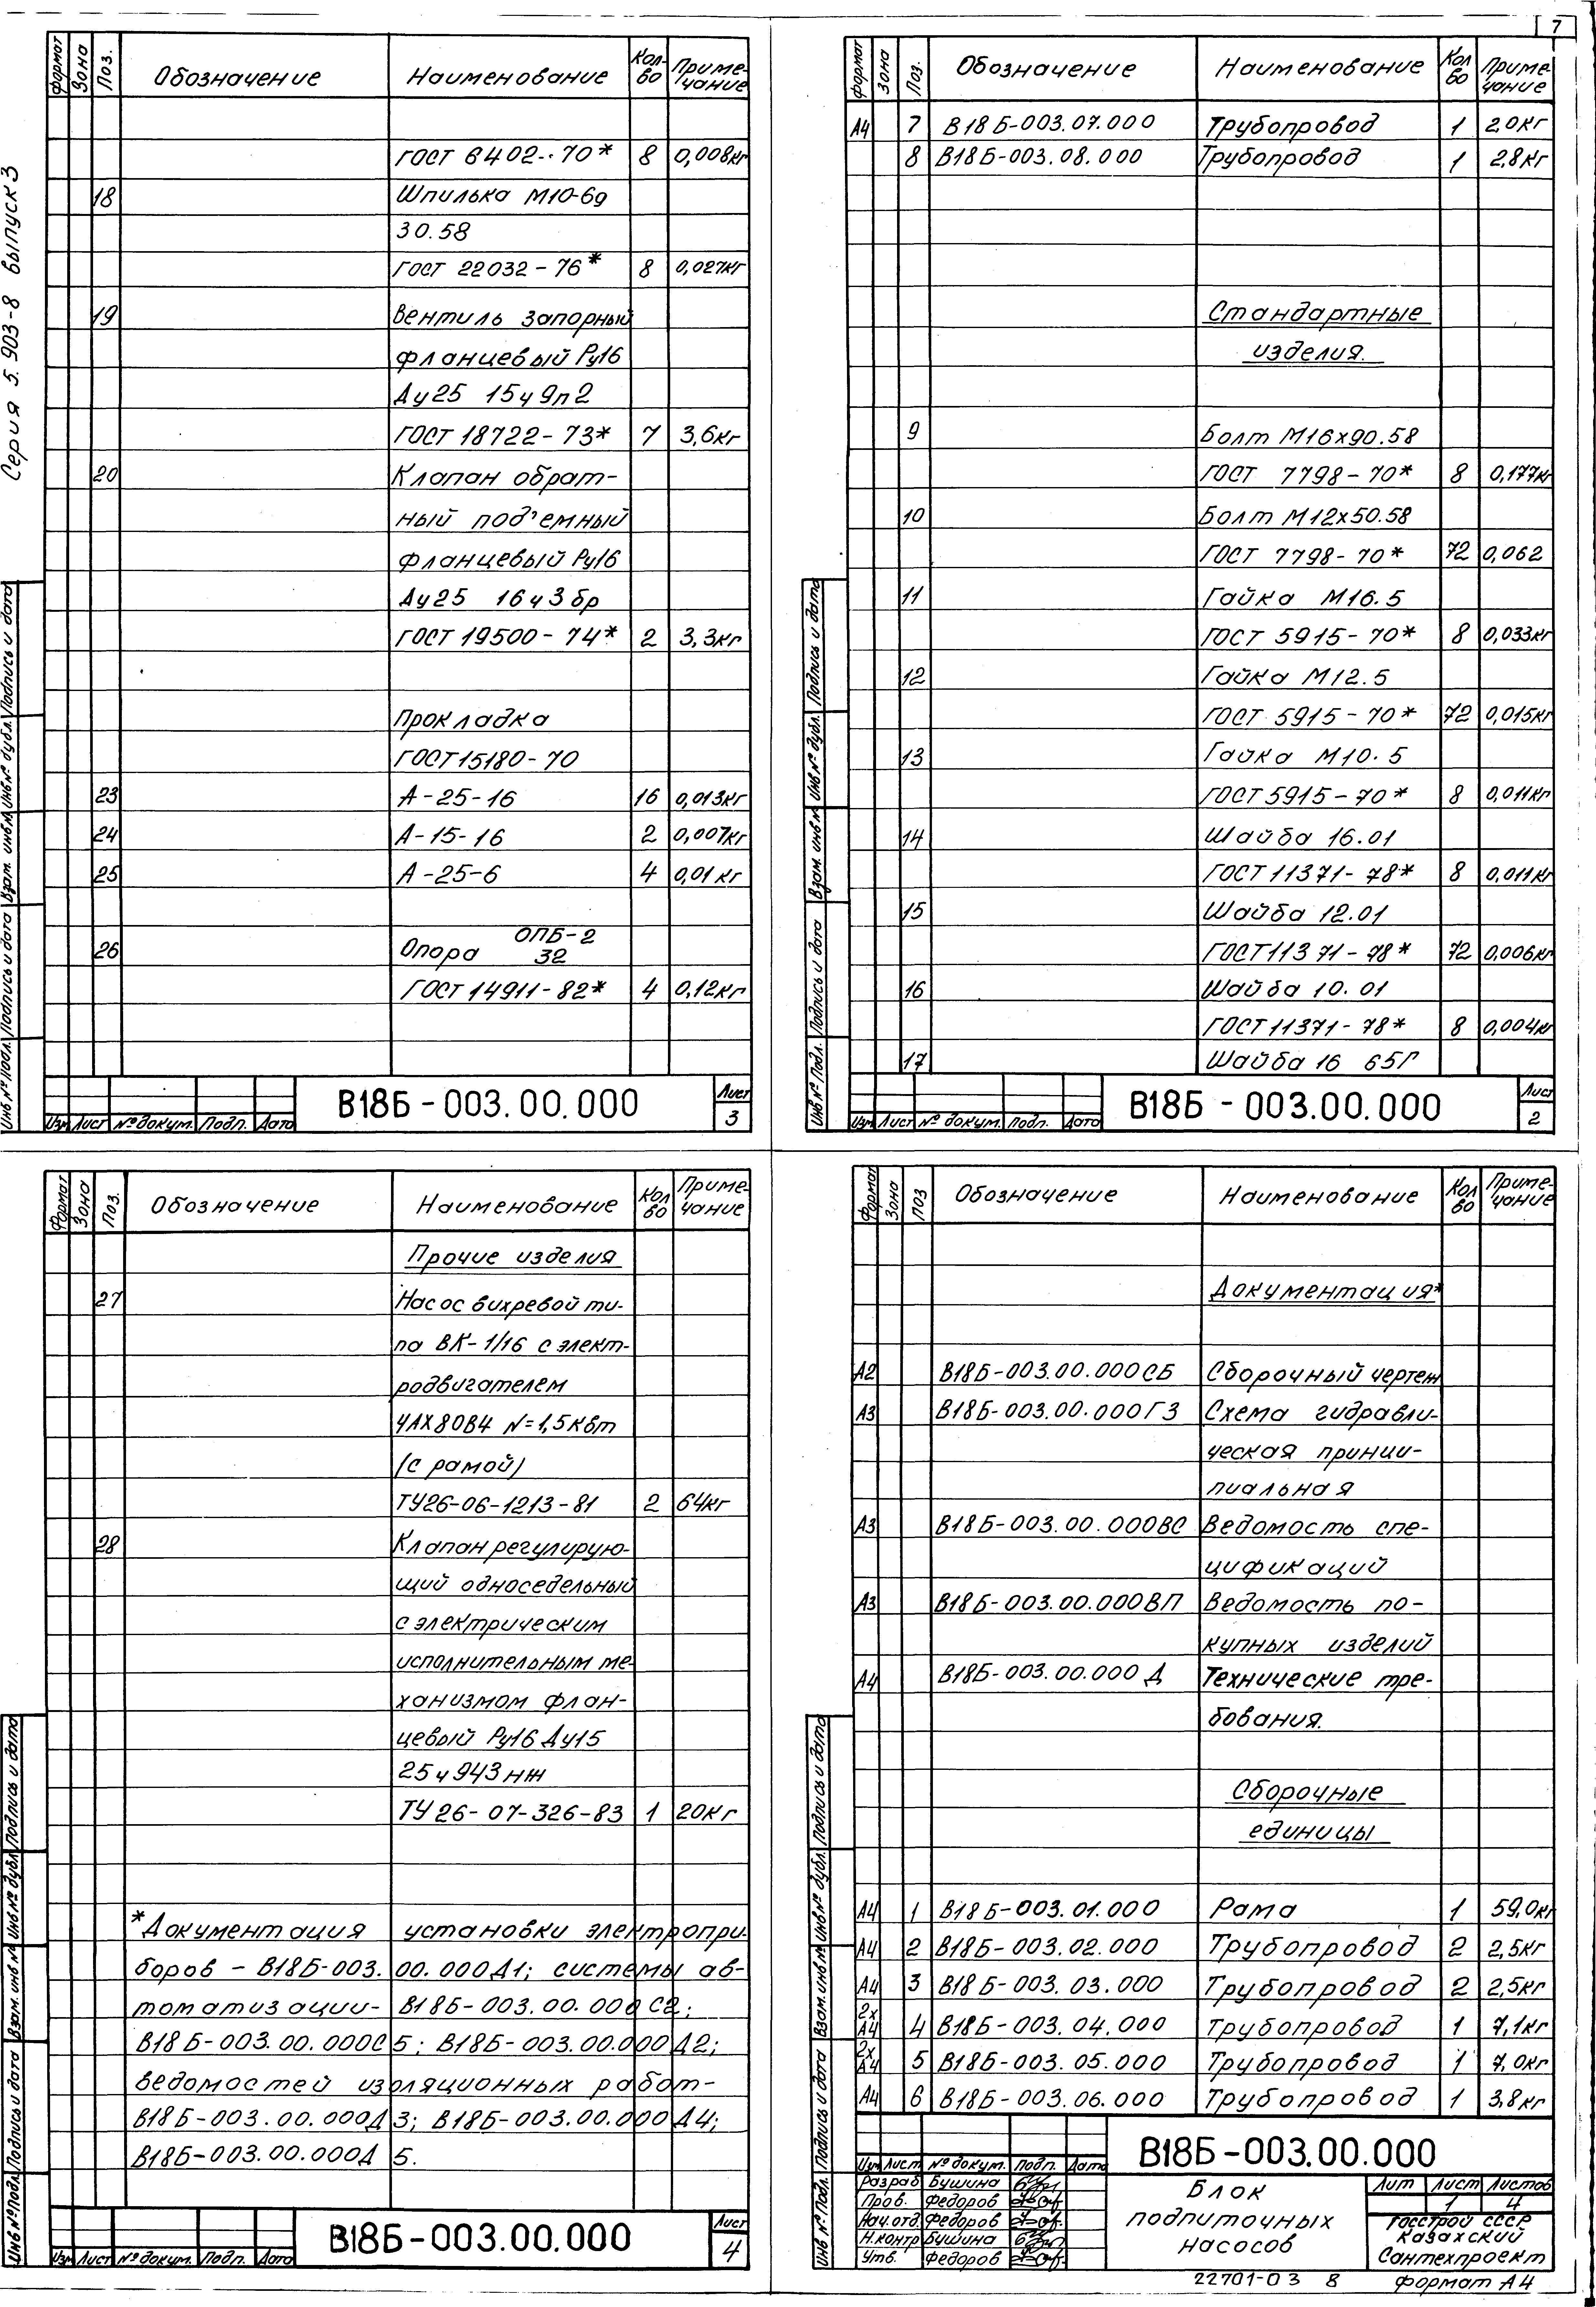 7
Серия 5.903-8 выпуск 3
Формат Зона Поз. Обозначение Наименование Кол-во Приме-чание
ГОСТ 6402-70* 8 0,008кг
18 Шпилька М10-6g
30.58
ГОСТ 22032-76* 8 0,027кг
19 Вентиль запорный
фланцевый Ру16
Ду25 15ч9п2
ГОСТ 18722-73* 7 3,6кг
20 Клапан обрат-
ный под'емный
фланцевый Ру16
Ду25 16ч3бр
ГОСТ 19500-74* 2 3,3кг
Прокладка
ГОСТ15180-70
23 А-25-16 16 0,013кг
24 А-15-16 2 0,007кг
25 А-25-6 4 0,01кг
26 Опора ОПБ-2 32
ГОСТ 14911-82* 4 0,12кг
В18Б-003.00.000 Лист 3
Изм Лист №докум. Подп. Дата
Инв №Подл. Подпись и дата Взам. инв.№ Инв№ дубл. Подпись и дата
Формат Зона Поз. Обозначение Наименование Кол во Приме-чание
А4 7 В18Б-003.07.000 Трубопровод 1 2.0кг
8 В18Б-003.08.000 Трубопровод 1 2,8кг
Стандартные
изделия.
9 Болт М16х90.58
ГОСТ 7798-70* 8 0,177кг
10 Болт М12х50.58
ГОСТ 7798-70* 72 0,062
11 Гайка М16.5
ГОСТ 5915-70* 8 0,033кг
12 Гайка М12.5
ГОСТ 5915-70* 72 0,015кг
13 Гайка М10.5
ГОСТ5915-70* 8 0,011кг
14 Шайба 16.01
ГОСТ11371-78* 8 0,011кг
15 Шайба 12.01
ГОСТ11371-78* 72 0,006кг
16 Шайба 10.01
ГОСТ11371-78* 8 0,004кг
17 Шайба 16 65Г
В18Б-003.00.000 Лист 2
Изм Лист № докум. Подп. Дата
Инв№ Подл. Подпись и дата Взам. инв№ Инв№ дубл. Подпись и дата
Формат Зона Поз. Обозначение Наименование Кол во Приме-чание
Прочие изделия
27 Насос вихревой ти-
па ВК-1/16 с элект-
родвигателем
4АХ80В4 N=1,5кВт
(с рамой)
ТУ26-06-1213-81 2 64кг
28 Клапан регулирую-
щий односедельный
с электрическим
исполнительным ме-
ханизмом флан-
цевый Ру16 Ду15
25ч943нж
ТУ26-07-326-83 1 20кг
*Документация установки электропри-
боров - В18Б-003.00.000Д1; системы ав-
томатизации- В18Б-003.00.000С2;
В18Б-003.00.000С5; В18Б-003.00.000Д2;
ведомостей изоляционных работ-
В18Б-003.00.000Д3; В18Б-003.00.000Д4;
В18Б-003.00.000Д5.
В18Б-003.00.000 Лист 4
Изм Лист №докум. Подп. Дата
Инв №Подл. Подпись и дата Взам. инв № Инв№ дубл. Подпись и дата
Формат Зона Поз Обозначение Наименование Кол во Приме-чание
Документация*
А2 В18Б-003.00.000СБ Сборочный чертеж
А3 В18Б-003.00.000Г3 Схема гидравли-
ческая принци-
пиальная
А3 В18Б-003.00.000ВС Ведомость спе-
цификаций
А3 В18Б-003.00.000ВП Ведомость по-
купных изделий
А4 В18Б-003.00.000 Д Технические тре-
бования.
Сборочные
единицы
А4 1 В18Б-003.01.000 Рама 1 59,0кг
А4 2 В18Б-003.02.000 Трубопровод 2 2,5кг
А4 3 В18Б-003.03.000 Трубопровод 2 2,5кг
2х А4 4 В18Б-003.04.000 Трубопровод 1 7,1кг
2х А4 5 В18Б-003.05.000 Трубопровод 1 7,0кг
А4 6 В18Б-003.06.000 Трубопровод 1 3,8кг
В18Б-003.00.000
Изм Лист № докум. Подп. Дата
Разраб Бушина
Пров. Федоров
Нач.отд. Федоров
Н.контр Бушина
Утв. Федоров
Блок
подпиточных
насосов
Лит Лист Листов
1 4
Госстрой СССР
Казахский
Сантехпроект
Инв № Подл. Подпись и дата Взам. инв № Инв№ дубл. Подпись и дата
22701-03 8 Формат А4